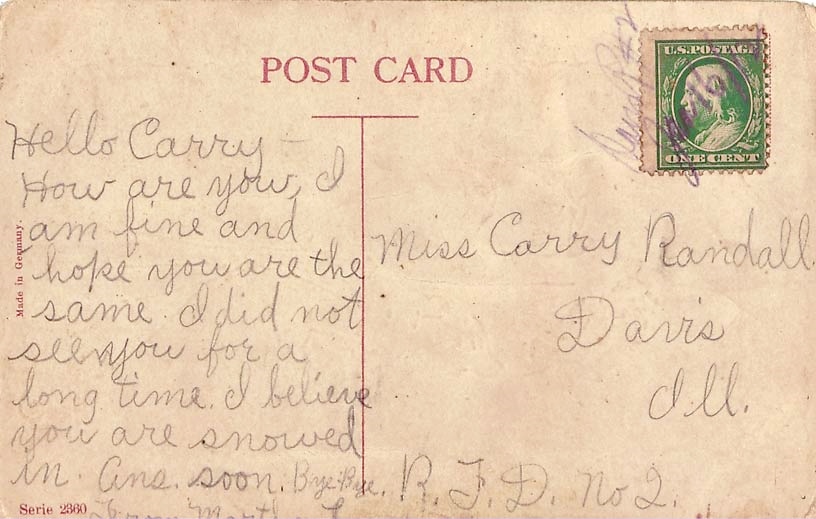 POST CARD
U.S.POSTAGE
ONE CENT
Hello Carry –
How are you, I
am fine and
hope you are the
same. I did not
see you for a
long time. I believe
you are snowed
in. Ans. soon. Bye-Bye.
From
Miss Carry Randall
Davis
Ill.
R. F. D. No 2.
Made in Germany.
Serie 2360